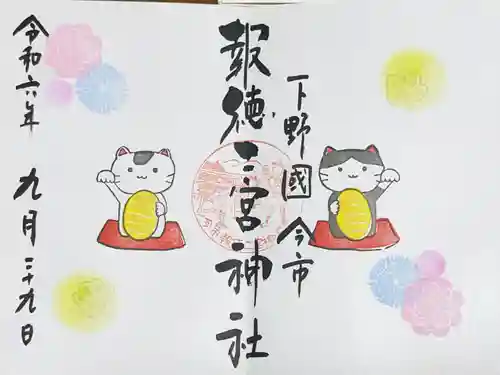 下野國 今市
報徳二宮神社
令和六年 九月二十九日